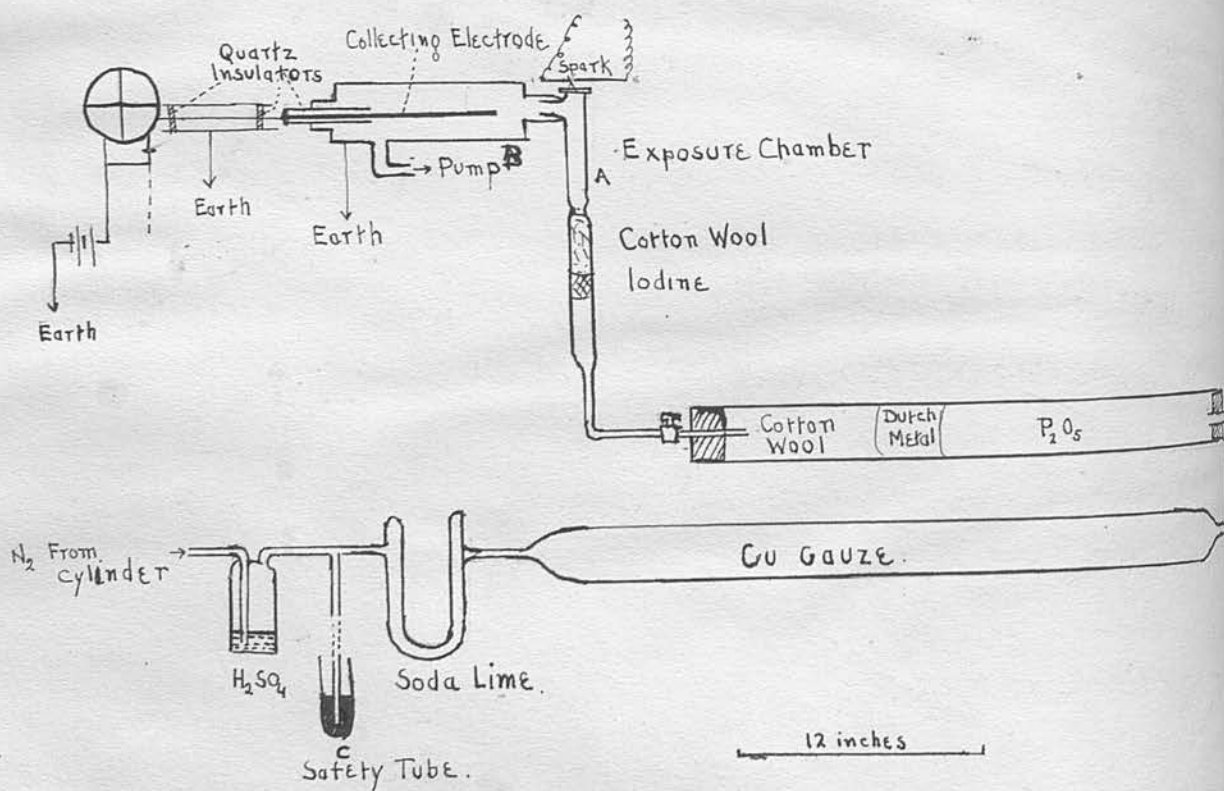 Quartz
Insulators
Collecting Electrode
Spark
Exposure Chamber
→ Pump
B
A
Earth
Earth
Earth
Cotton Wool
Iodine
Cotton
Wool
Dutch
Metal
P₂O₅
N₂ From
cylinder →
Cu Gauze.
H₂SO₄
Soda Lime.
C
Safety Tube.
12 inches